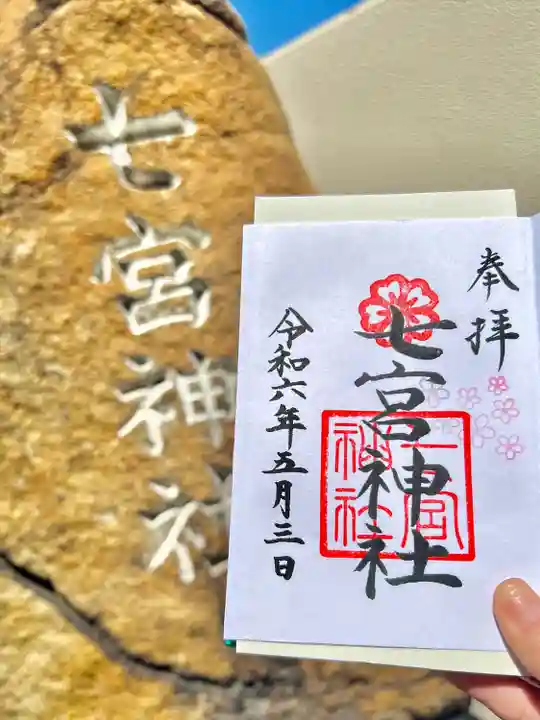 七宮神社
奉拝
七宮神社
七宮神社
令和六年五月三日